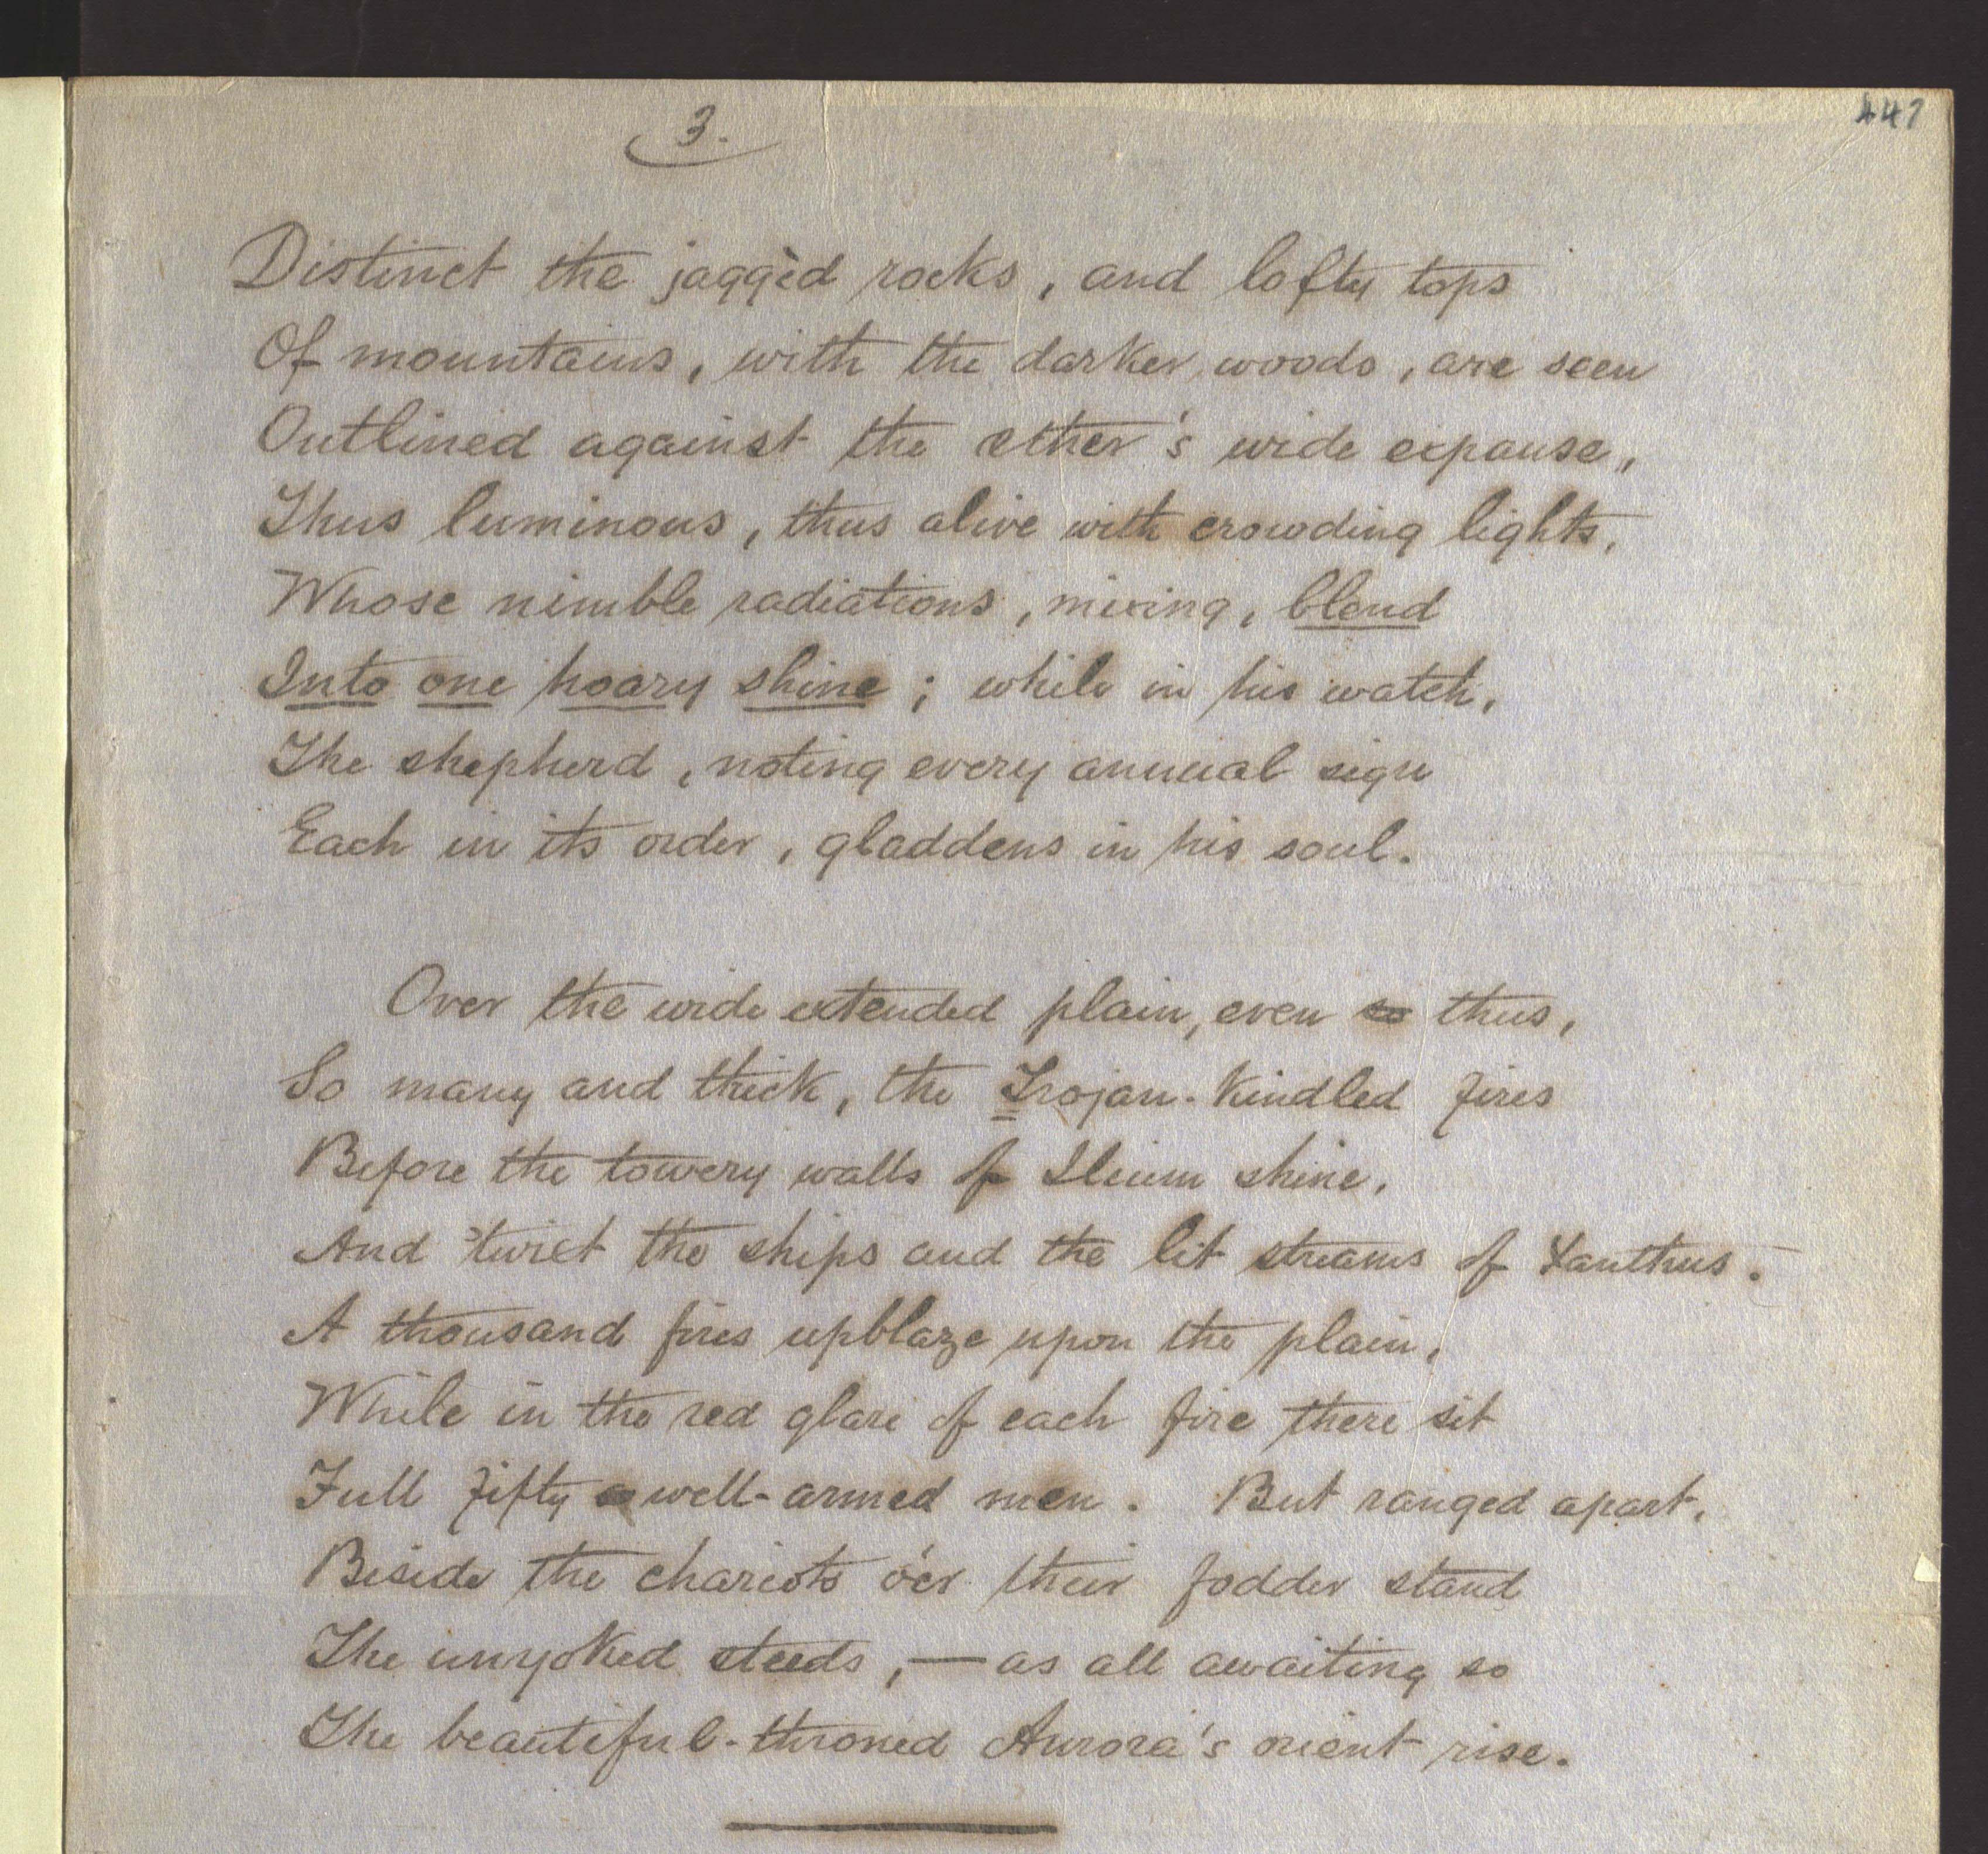 3.
447
Distinct the jaggèd rocks, and lofty tops
Of mountains, with the darker woods, are seen
Outlined against the ether's wide expanse,
Thus luminous, thus alive with crowding lights,
Whose nimble radiations, mixing, blend
Into one hoary shine; while in his watch,
The shepherd, noting every annual sign
Each in its order, gladdens in his soul.
Over the wide extended plain, even so thus,
So many and thick, the Trojan-kindled fires
Before the towery walls of Ilium shine,
And 'twixt the ships and the lit streams of Xanthus.
A thousand fires upblaze upon the plain,
While in the red glare of each fire there sit
Full fifty well-armed men. But ranged apart,
Beside the chariots o'er their fodder stand
The unyoked steeds,—as all awaiting so
The beautiful-throned Aurora's orient rise.